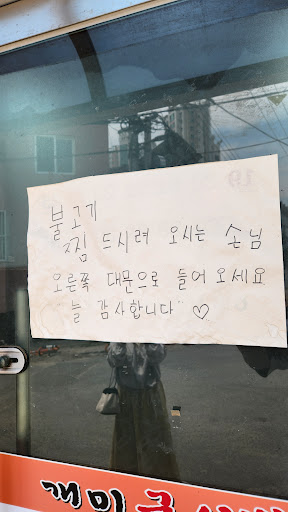 불고기
찜 드시러 오시는 손님
오른쪽 대문으로 들어오세요
늘 감사합니다 ♡
개미